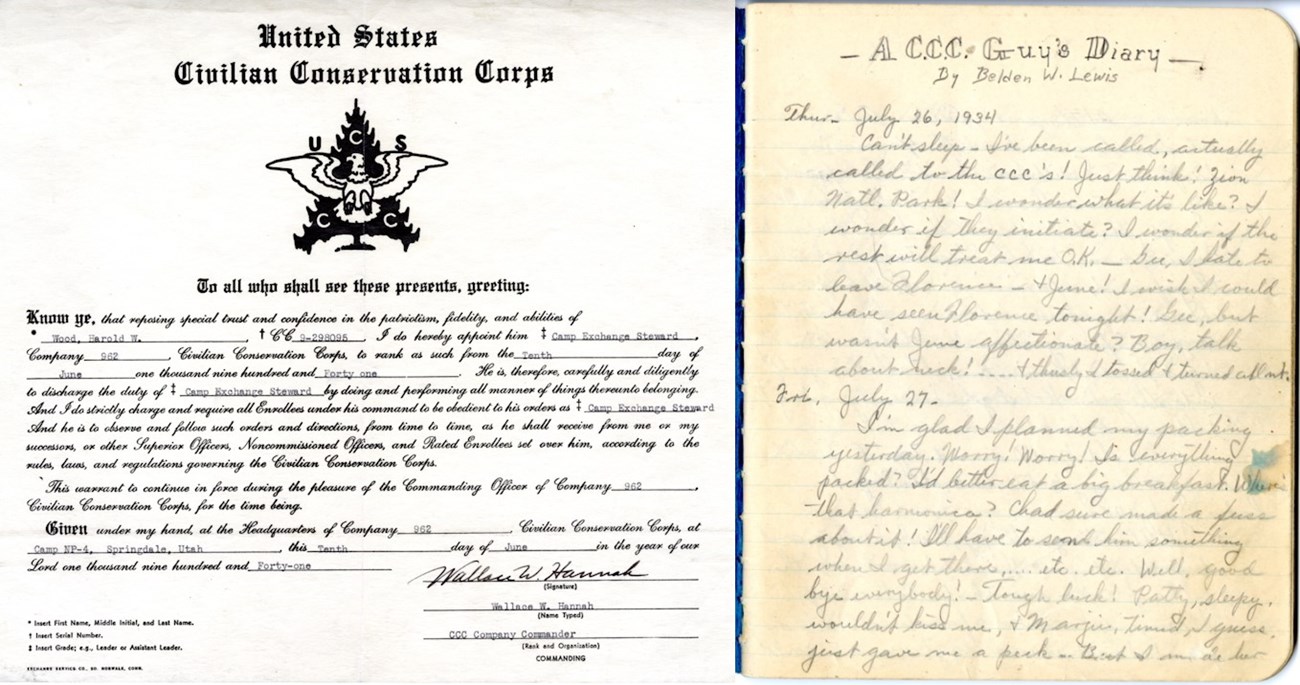 United States
Civilian Conservation Corps
U C S
C C
To all who shall see these presents, greeting:
Know ye, that reposing special trust and confidence in the patriotism, fidelity, and abilities of
* Wood, Harold W. , † CC 9-298095 . I do hereby appoint him ‡ Camp Exchange Steward ,
Company 962 , Civilian Conservation Corps, to rank as such from the Tenth day of
June one thousand nine hundred and Forty one . He is, therefore, carefully and diligently
to discharge the duty of ‡ Camp Exchange Steward by doing and performing all manner of things thereunto belonging.
And I do strictly charge and require all Enrollees under his command to be obedient to his orders as ‡ Camp Exchange Steward
And he is to observe and follow such orders and directions, from time to time, as he shall receive from me or my
successors, or other Superior Officers, Noncommissioned Officers, and Rated Enrollees set over him, according to the
rules, laws, and regulations governing the Civilian Conservation Corps.
This warrant to continue in force during the pleasure of the Commanding Officer of Company 962 ,
Civilian Conservation Corps, for the time being.
Given under my hand, at the Headquarters of Company 962 , Civilian Conservation Corps, at
Camp NP-4, Springdale, Utah , this Tenth day of June in the year of our
Lord one thousand nine hundred and Forty-one
Wallace W. Hannah
(Signature)
Wallace W. Hannah
(Name Typed)
CCC Company Commander
(Rank and Organization)
COMMANDING
* Insert First Name, Middle Initial, and Last Name.
† Insert Serial Number.
‡ Insert Grade; e.g., Leader or Assistant Leader.
EXCHANGE SERVICE CO., SO. NORWALK, CONN.
— A C.C.C. Guy's Diary —
By Belden W. Lewis
Thur– July 26, 1934
Can't sleep – I've been called, actually
called to the CCC's! Just think! Zion
Natl. Park! I wonder what it's like? I
wonder if they initiate? I wonder if the
rest will treat me O.K. — Gee, I hate to
leave Florence – + June! I wish I could
have seen Florence tonight! Gee, but
wasn't June affectionate? Boy, talk
about neck! .... + thusly I tossed + turned all nt.
July 27–
I'm glad I planned my packing
yesterday. Worry! Worry! Is everything
packed? I'd better eat a big breakfast. Where's
that harmonica? Chad sure made a fuss
about it! I'll have to send him something
when I get there, .... etc. etc. Well, good
bye everybody! – Tough luck! Patty, sleepy,
wouldn't kiss me, + Margie, timid, I guess,
just gave me a peck – But I'm her